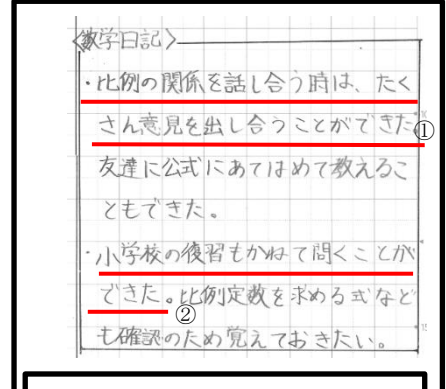 〈数学日記〉
・比例の関係を話し合う時は、たく
さん意見を出し合うことができた
①
友達に公式にあてはめて教えるこ
ともできた。
・小学校の復習もかねて聞くことが
できた。比例定数を求める式など
②
も確認のため覚えておきたい。